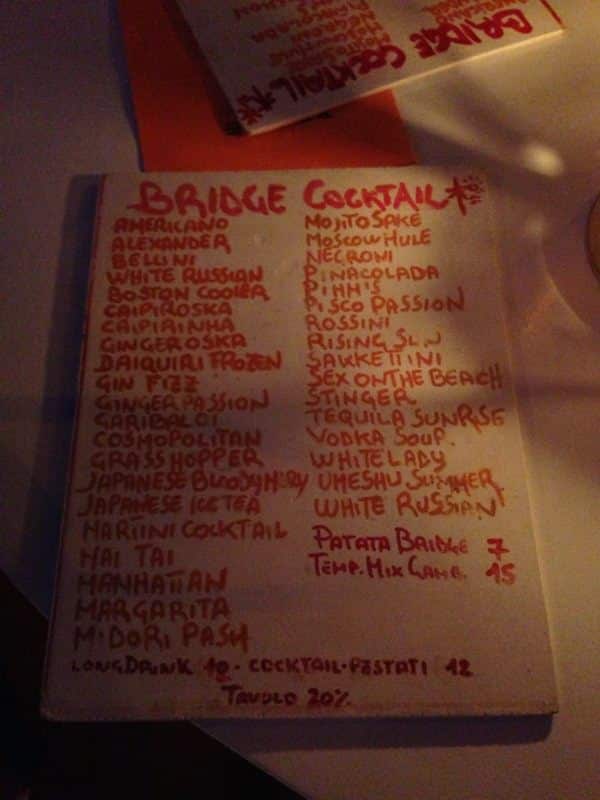 BRIDGE COCKTAIL
BRIDGE COCKTAIL
AMERICANO
ALEXANDER
BELLINI
WHITE RUSSIAN
BOSTON COOLER
CAIPIROSKA
CAIPIRINHA
GINGEROSKA
DAIQUIRI FROZEN
GIN FIZZ
GINGER PASSION
GARIBALDI
COSMOPOLITAN
GRASSHOPPER
JAPANESE BLOODY MARY
JAPANESE ICE TEA
MARTINI COCKTAIL
MAI TAI
MANHATTAN
MARGARITA
MIDORI PASH
MOJITO SAKE
MOSCOW MULE
NEGRONI
PINACOLADA
PIMM'S
PISCO PASSION
ROSSINI
RISING SUN
SAKKETTINI
SEX ON THE BEACH
STINGER
TEQUILA SUNRISE
VODKA SOUR
WHITE LADY
UMESHU SUMMER
WHITE RUSSIAN
PATATA BRIDGE 7
TEMP. MIX GAMB. 15
LONG DRINK 10 - COCKTAIL - PESTATI 12
TAVOLO 20%